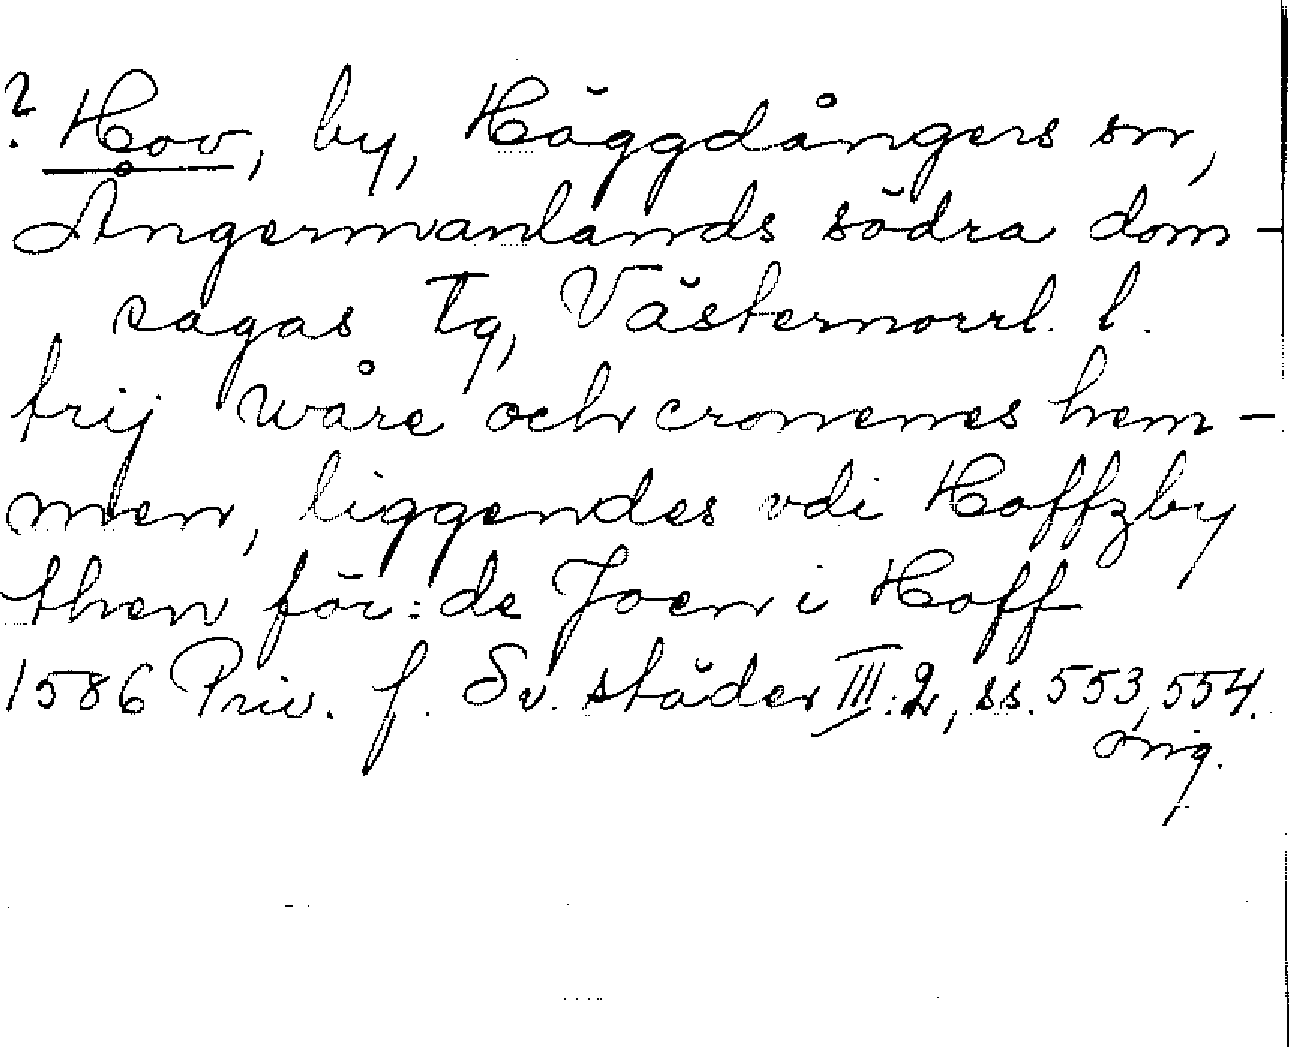 ? Hov, by, Häggdångers sn,
Ångermanlands södra dom-
sagas tg, Västernorrl. l.
trij wåre och cronenes hem-
men, liggendes vdi Hoffzby
then för:de Joen i Hoff
1586 Priv. f. Sv. städer III:2, ss. 553, 554.
orig.